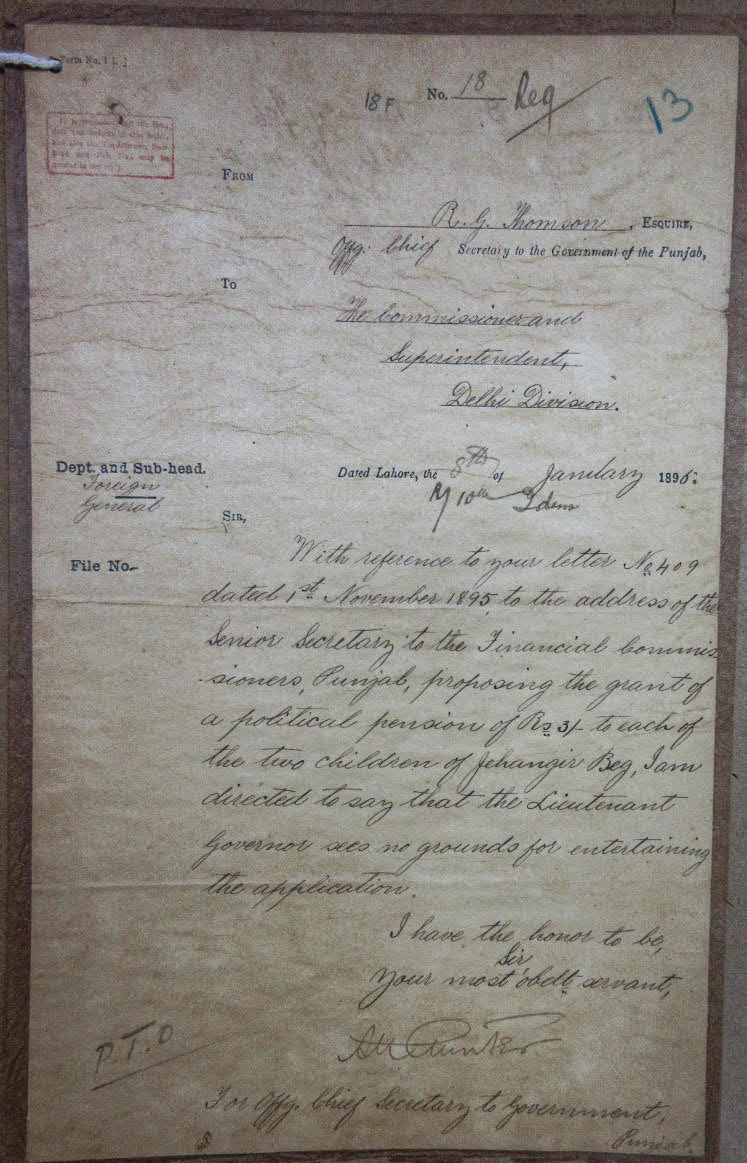 Form No. 11. ]
18 F No. 18 Reg
13
FROM
R. G. Thomson, ESQUIRE,
Offg. Chief Secretary to the Government of the Punjab,
To
The Commissioner and
Superintendent,
Delhi Division.
Dept. and Sub-head.
Foreign
General
Dated Lahore, the 8th of January 1896.
10th Idem
SIR,
File No.
With reference to your letter No 409
dated 1st November 1895, to the address of the
Senior Secretary to the Financial Commis
-sioners, Punjab, proposing the grant of
a political pension of Rs 3/- to each of
the two children of Jehangir Beg, I am
directed to say that the Lieutenant
Governor sees no grounds for entertaining
the application.
I have the honor to be,
Sir
Your most obdt servant,
P.T.O
For Offg. Chief Secretary to Government,
Punjab.